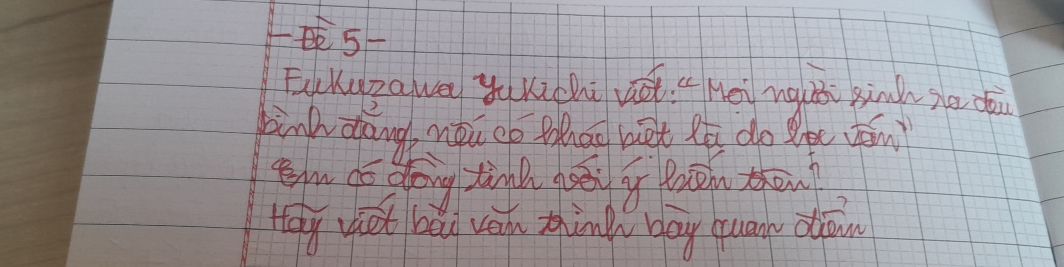 - ĐỀ 5 -
Fukuzawa Yukichi viết: "Mọi người sinh ra đều
bình đẳng, nếu có khác biệt là do học vấn"
Em có đồng tình với ý kiến trên?
Hãy viết bài văn trình bày quan điểm